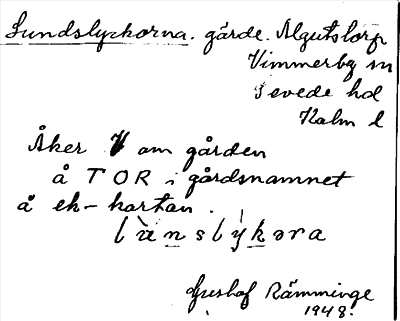 Lundslyckorna. gärde. Algutstorp
Vimmerby sn
Sevede hd
Kalm l
Åker V om gården
å TOR i gårdsnamnet
å ek-kartan.
lùnslýkəra
Gustaf Rämminge
1948.